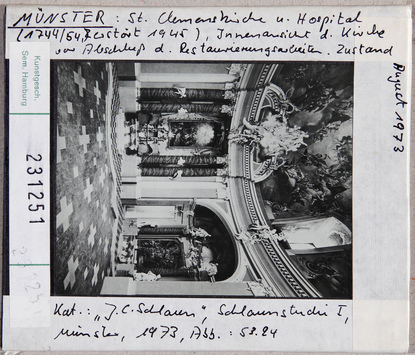 MÜNSTER: St. Clemenskirche u. Hospital
(1744/54, Zerstört 1945), Innenansicht d. Kirche
vor Abschluß d. Restaurierungsarbeiten. Zustand
August 1973
Kunstgesch.
Sem. Hamburg
231251
Kat.: „J. C. Schlaun", Schlaunstudie I,
Münster, 1973, Abb.: 53.24